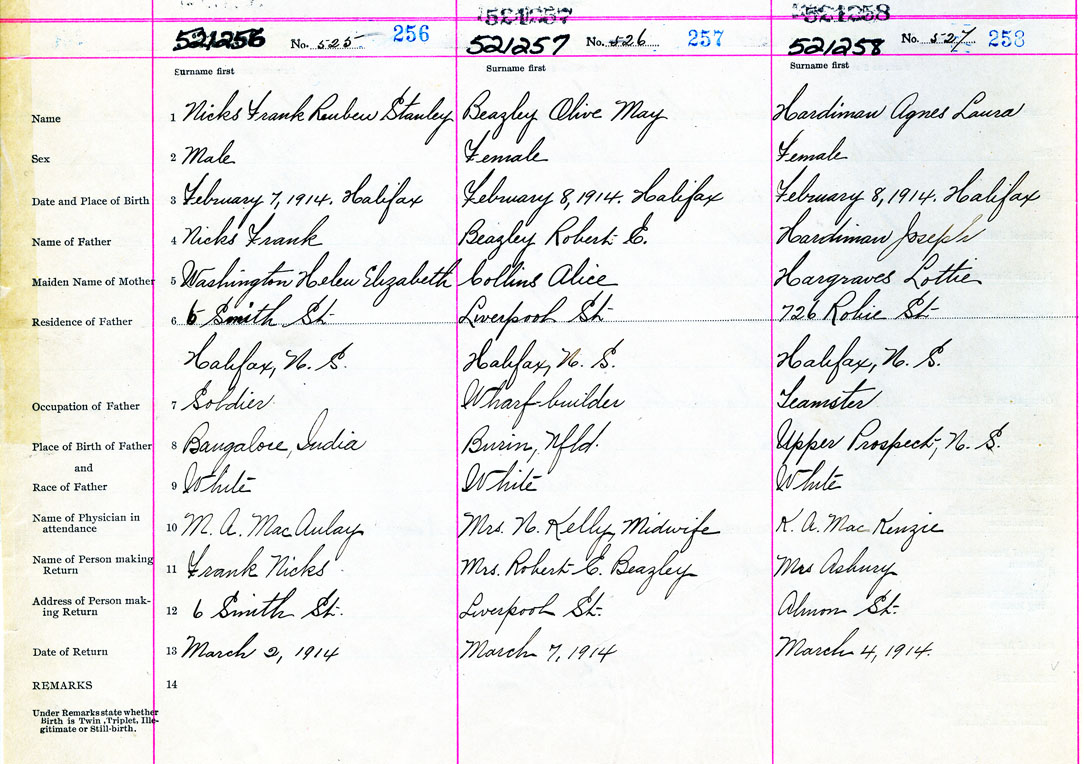 521257 521258
521256 No. 525 256 521257 No. 526 257 521258 No. 527 258
Surname first Surname first Surname first
Name 1 Nicks Frank Reuben Stanley Beazley Olive May Hardiman Agnes Laura
Sex 2 Male Female Female
Date and Place of Birth 3 February 7, 1914. Halifax February 8, 1914. Halifax February 8, 1914. Halifax
Name of Father 4 Nicks Frank Beazley Robert E. Hardiman Joseph
Maiden Name of Mother 5 Washington Helen Elizabeth Collins Alice Hargraves Lottie
Residence of Father 6 6 Smith St. Liverpool St. 726 Robie St.
Halifax, N. S. Halifax, N. S. Halifax, N. S.
Occupation of Father 7 Soldier Wharf-builder Teamster
Place of Birth of Father 8 Bangalore, India Burin, Nfld. Upper Prospect, N. S.
and
Race of Father 9 White White White
Name of Physician in
attendance 10 M. A. MacAulay Mrs. N. Kelly, Midwife K. A. MacKenzie
Name of Person making
Return 11 Frank Nicks Mrs. Robert E. Beazley Mrs Asbury
Address of Person mak-
ing Return 12 6 Smith St. Liverpool St. Almon St.
Date of Return 13 March 2, 1914 March 7, 1914 March 4, 1914.
REMARKS 14
Under Remarks state whether
Birth is Twin, Triplet, Ille-
gitimate or Still-birth.